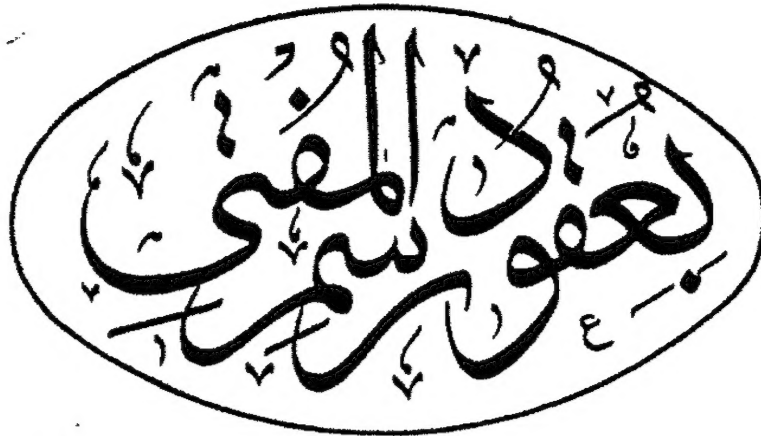 بِعُقُودِ رَسْمِ الْمُفْتِي